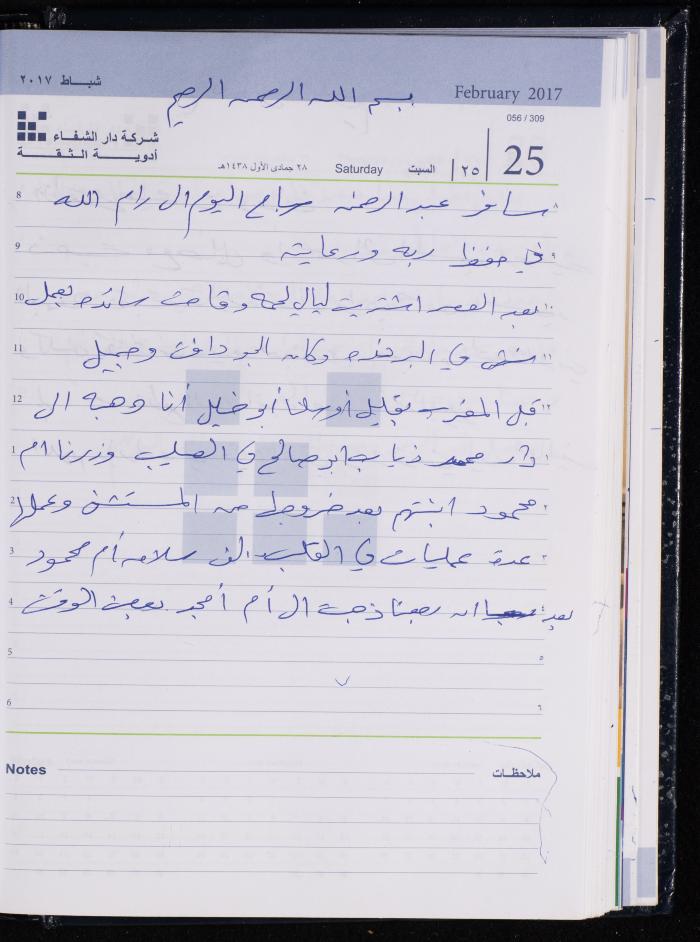 شباط ٢٠١٧
February 2017
بسم الله الرحمن الرحيم
056 / 309
شركة دار الشفاء
أدوية الثقة
٢٨ جمادى الأول ١٤٣٨هـ
Saturday
السبت
٢٥
25
8 سافر عبد الرحمن صباح اليوم الى رام الله ٨
9 في حفظ ربه ورعايته ٩
10 بعد العصر اشتريت ليال لحمة وقامت سائدة بعمل ١٠
11 في البرندة وكان الجو دافئ وجميل ١١
12 قبل المغرب بقليل أوصلنا أبو خليل أنا وهبه الى ١٢
1 دار محمد ذياب ابو صالح في الصليب وزرنا ام ١
2 محمود ابنتهم بعد خروجها من المستشفى وعملها ٢
3 عدة عمليات في القلب الف سلامه أم محمود ٣
4 بعد ان رجعنا ذهبت الى أم أمجد بعض الوقت ٤
5 ٥
6 ٦
Notes
ملاحظات